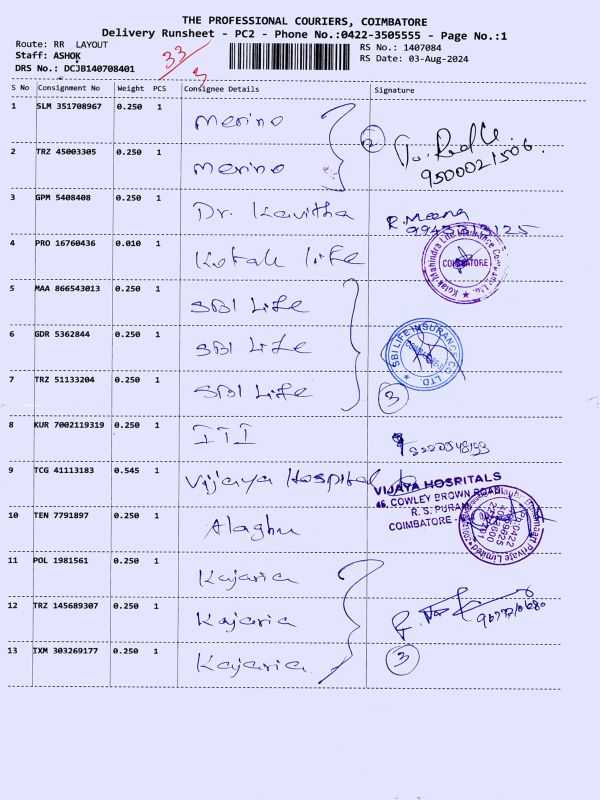 THE PROFESSIONAL COURIERS, COIMBATORE
Delivery Runsheet - PC2 - Phone No.:0422-3505555 - Page No.:1
Route: RR LAYOUT
Staff: ASHOK
DRS No.: DCJB140708401
33
3
RS No.: 1407084
RS Date: 03-Aug-2024
S No Consignment No Weight PCS Consignee Details Signature
1 SLM 351708967 0.250 1 Merino
2 TRZ 45003305 0.250 1 Merino 2
9500021506
3 GPM 5408408 0.250 1 Dr. Kavitha R. Meena
4 PRO 16760436 0.010 1 Kotak life
Kotak Mahindra Life Insurance Company Ltd.
COIMBATORE
5 MAA 866543013 0.250 1 SBI Life
6 GDR 5362844 0.250 1 SBI Life
SBI LIFE INSURANCE CO. LTD.
7 TRZ 51133204 0.250 1 SBI Life 3
8 KUR 7002119319 0.250 1 ITI
9 TCG 41113183 0.545 1 Vijaya Hospital
VIJAYA HOSPITALS
46, COWLEY BROWN ROAD
R. S. PURAM
COIMBATORE -
10 TEN 7791897 0.250 1 Alaghu
Private Limited
11 POL 1981561 0.250 1 Kajaria
12 TRZ 145689307 0.250 1 Kajaria
13 IXM 303269177 0.250 1 Kajaria 3